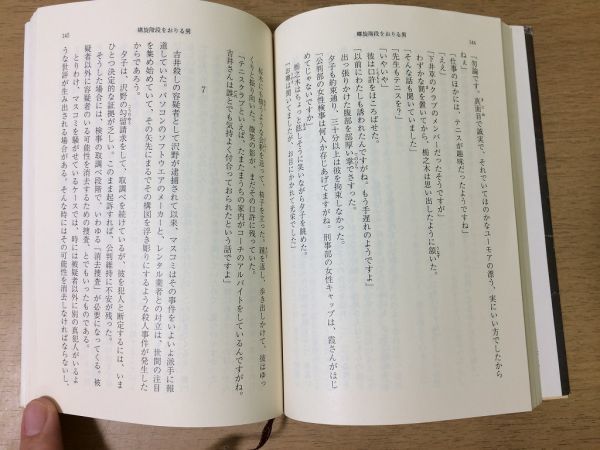 螺旋階段をおりる男
144
「勿論です。真面目で誠実で、それでいてほのかなユーモアの漂う、実にいい方でしたから
ねえ」
「仕事のほかには、テニスが趣味だったようですね」
「ええ」
「下井草のクラブのメンバーだったそうですが」
わずかな間を置いてから、栃之木は思い出したように頷いた。
「そんな話も聞いていました」
「先生もテニスを?」
「いやいや」
彼は口許をほころばせた。
「以前にわたしも誘われたんですがね、もう手遅れのようですよ」
出っ張りかけた腹部を部厚い掌でさすった。
夕子も約束通り、三十分以上は彼を拘束しなかった。
「公判部の女性検事は何人か存じあげてますが、刑事部の女性キャップは、霞さんがはじ
めてじゃないですか」
栃之木はちょっと冗談めかしそうに笑いながら夕子を眺めた。
「お噂は聞いてましたが、お目にかかれて光栄でした」
螺旋階段をおりる男
145
くり振り向いた。微笑の影が、まだその眸に残っていた。
「テニスクラブといえば、たまたまうちの家内がコーチのアルバイトをしているんですがね。
吉井さんは誰とでも気持よく付合っておられたという話ですよ」
7
吉井殺しの容疑者として沢野が逮捕されて以来、マスコミはその事件をいよいよ派手に報
道していた。パソコンのソフトウエアのメーカーと、レンタル業者との対立は、世間の注目
を集め始めていて、その矢先にまるでその構図を浮き彫りにするような殺人事件が発生した
からであろう。
夕子は、沢野の勾留請求をして、取調べを続けているが、彼を犯人と断定するには、いま
ひとつ決定的な証拠が乏しい。このまま起訴すれば、公判維持に不安が残った。
そうした場合には、検事の取調べ段階で、いわゆる「消去捜査」が必要になってくる。被
疑者以外に容疑者のいる可能性を消去するための捜査、とでもいったものである。
とりわけ、マスコミが騒がせているケースでは、時には被疑者以外に別の真犯人がいるよ
うな世評が生み出される場合がある。そんな時にはその可能性を消去しなければならないし、